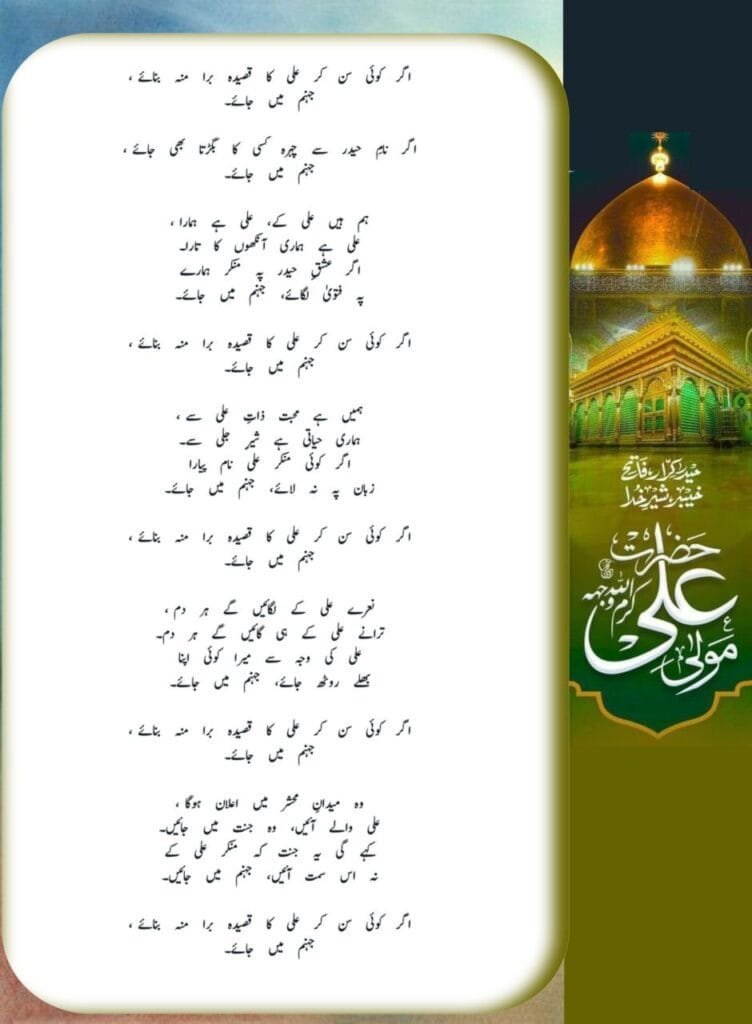 اگر کوئی سن کر علی کا قصیدہ برا منہ بنائے ،
جہنم میں جائے۔
اگر نامِ حیدر سے چہرہ کسی کا بگڑتا بھی جائے ،
جہنم میں جائے۔
ہم ہیں علی کے، علی ہے ہمارا ،
علی ہے ہماری آنکھوں کا تارا۔
اگر عشقِ حیدر پہ منکر ہمارے
پہ فتویٰ لگائے، جہنم میں جائے۔
اگر کوئی سن کر علی کا قصیدہ برا منہ بنائے ،
جہنم میں جائے۔
ہمیں ہے محبت ذاتِ علی سے ،
ہماری حیاتی ہے شیرِ جلی سے۔
اگر کوئی منکر علی نام پیارا
زبان پہ نہ لائے، جہنم میں جائے۔
اگر کوئی سن کر علی کا قصیدہ برا منہ بنائے ،
جہنم میں جائے۔
نعرے علی کے لگائیں گے ہر دم ،
ترانے علی کے ہی گائیں گے ہر دم۔
علی کی وجہ سے میرا کوئی اپنا
بھلے روٹھ جائے، جہنم میں جائے۔
اگر کوئی سن کر علی کا قصیدہ برا منہ بنائے ،
جہنم میں جائے۔
وہ میدانِ محشر میں اعلان ہوگا ،
علی والے آئیں، وہ جنت میں جائیں۔
کہے گی یہ جنت کہ منکر علی کے
نہ اس سمت آئیں، جہنم میں جائیں۔
اگر کوئی سن کر علی کا قصیدہ برا منہ بنائے ،
جہنم میں جائے۔
حیدر کرّار، فاتح
خیبر، شیرِ خدا
حضرت
علی
کرم اللہ وجہہ
مولیٰ